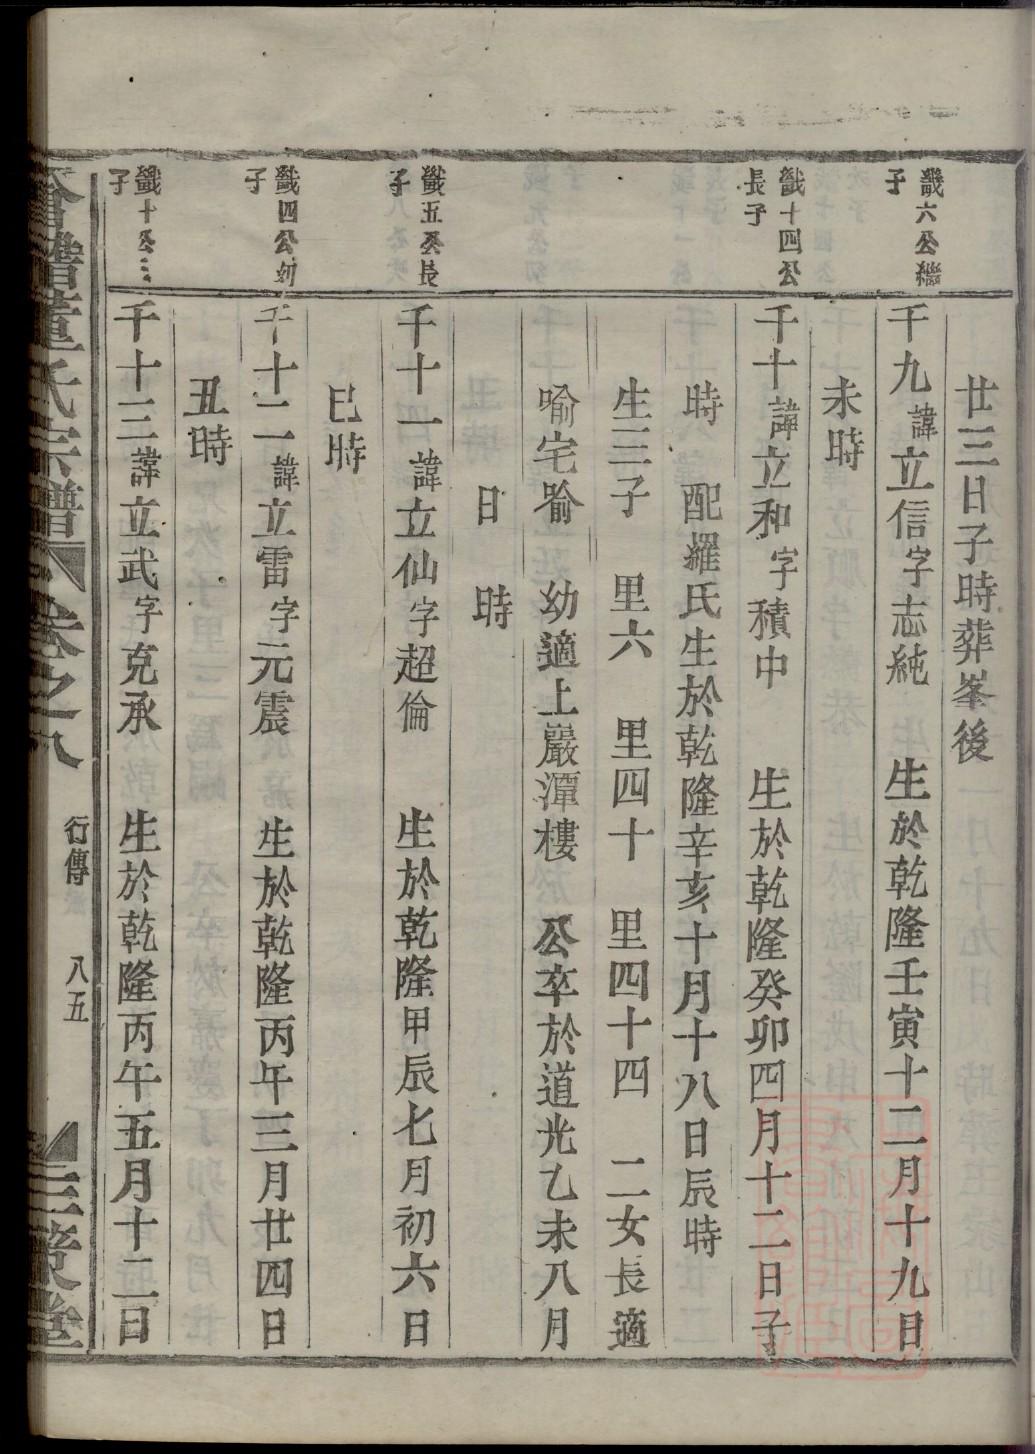 廿三日子時葬峯後
六公繼子
千九諱立信字志純　生於乾隆壬寅十二月十九日
未時
十四公長子
千十諱立和字積中　生於乾隆癸卯四月十二日子
時　配羅氏生於乾隆辛亥十月十八日辰時
生三子　里六　里四十　里四十四　二女長適
喻宅喻　幼適上巖潭樓　公卒於道光乙未八月
日　時
五公長子
千十一諱立仙字超倫　生於乾隆甲辰七月初六日
巳時
四公幼子
千十二諱立雷字元震　生於乾隆丙午三月廿四日
丑時
十公三子
千十三諱立武字克承　生於乾隆丙午五月十二日
會譜董氏宗譜　卷之八　行傳　八五　三策堂